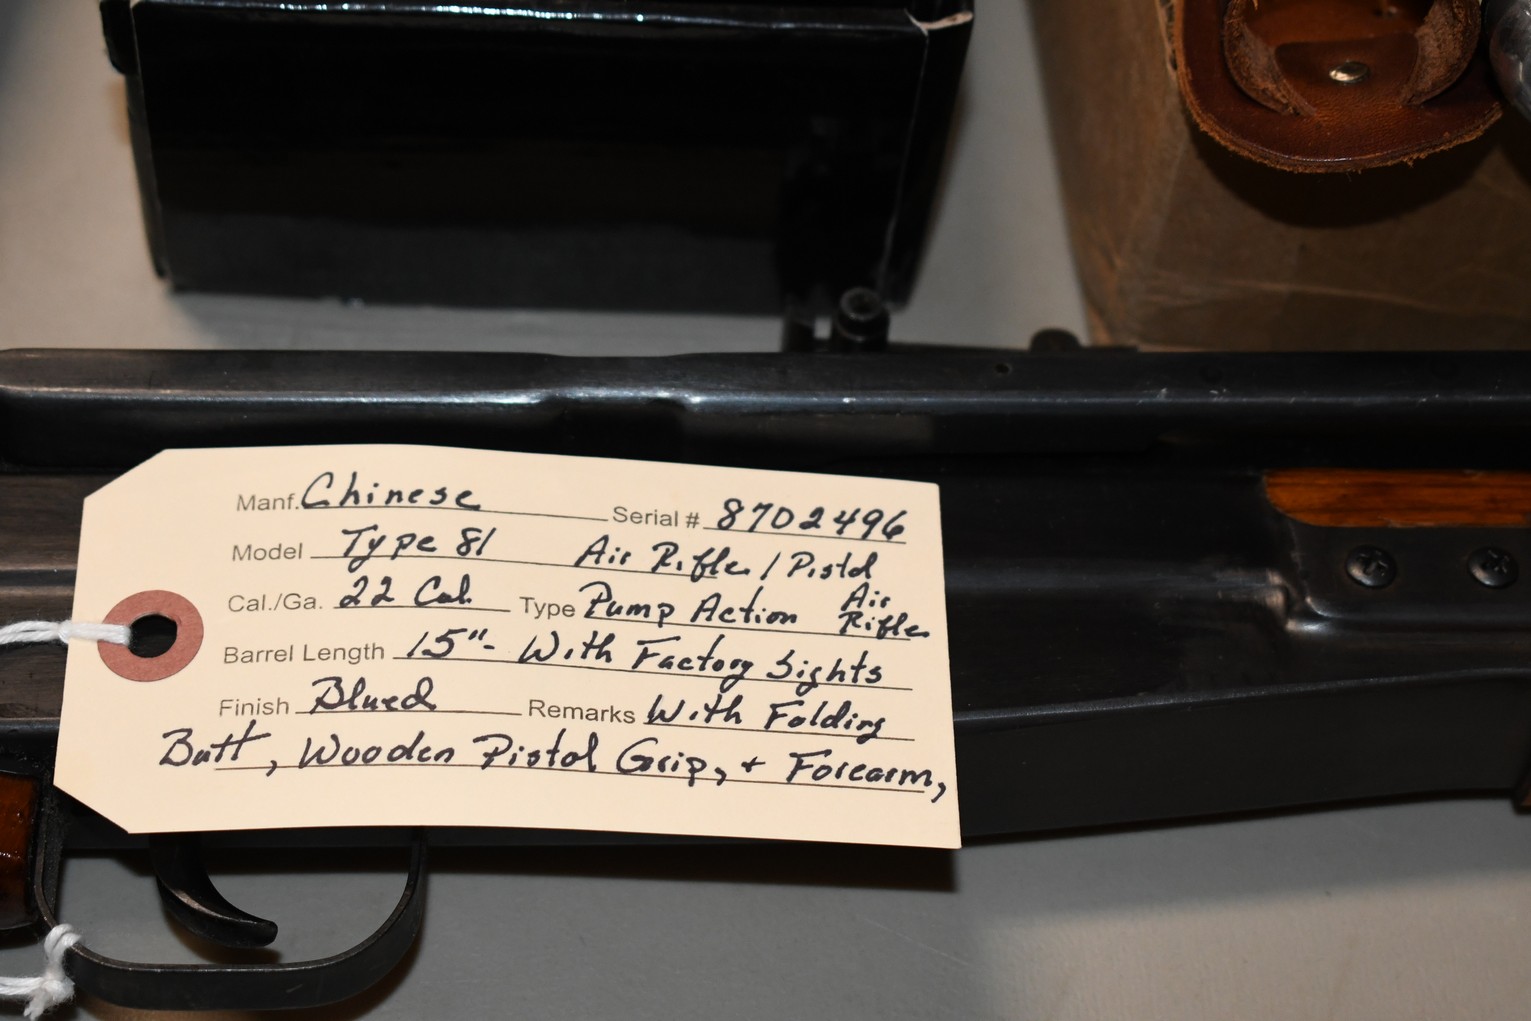 Manf. Chinese Serial # 8702496
Model Type 81 Air Rifle / Pistol
Cal./Ga. 22 Cal. Type Pump Action Air Rifle
Barrel Length 15"- With Factory Sights
Finish Blued Remarks With Folding
Butt, Wooden Pistol Grip, + Forearm,